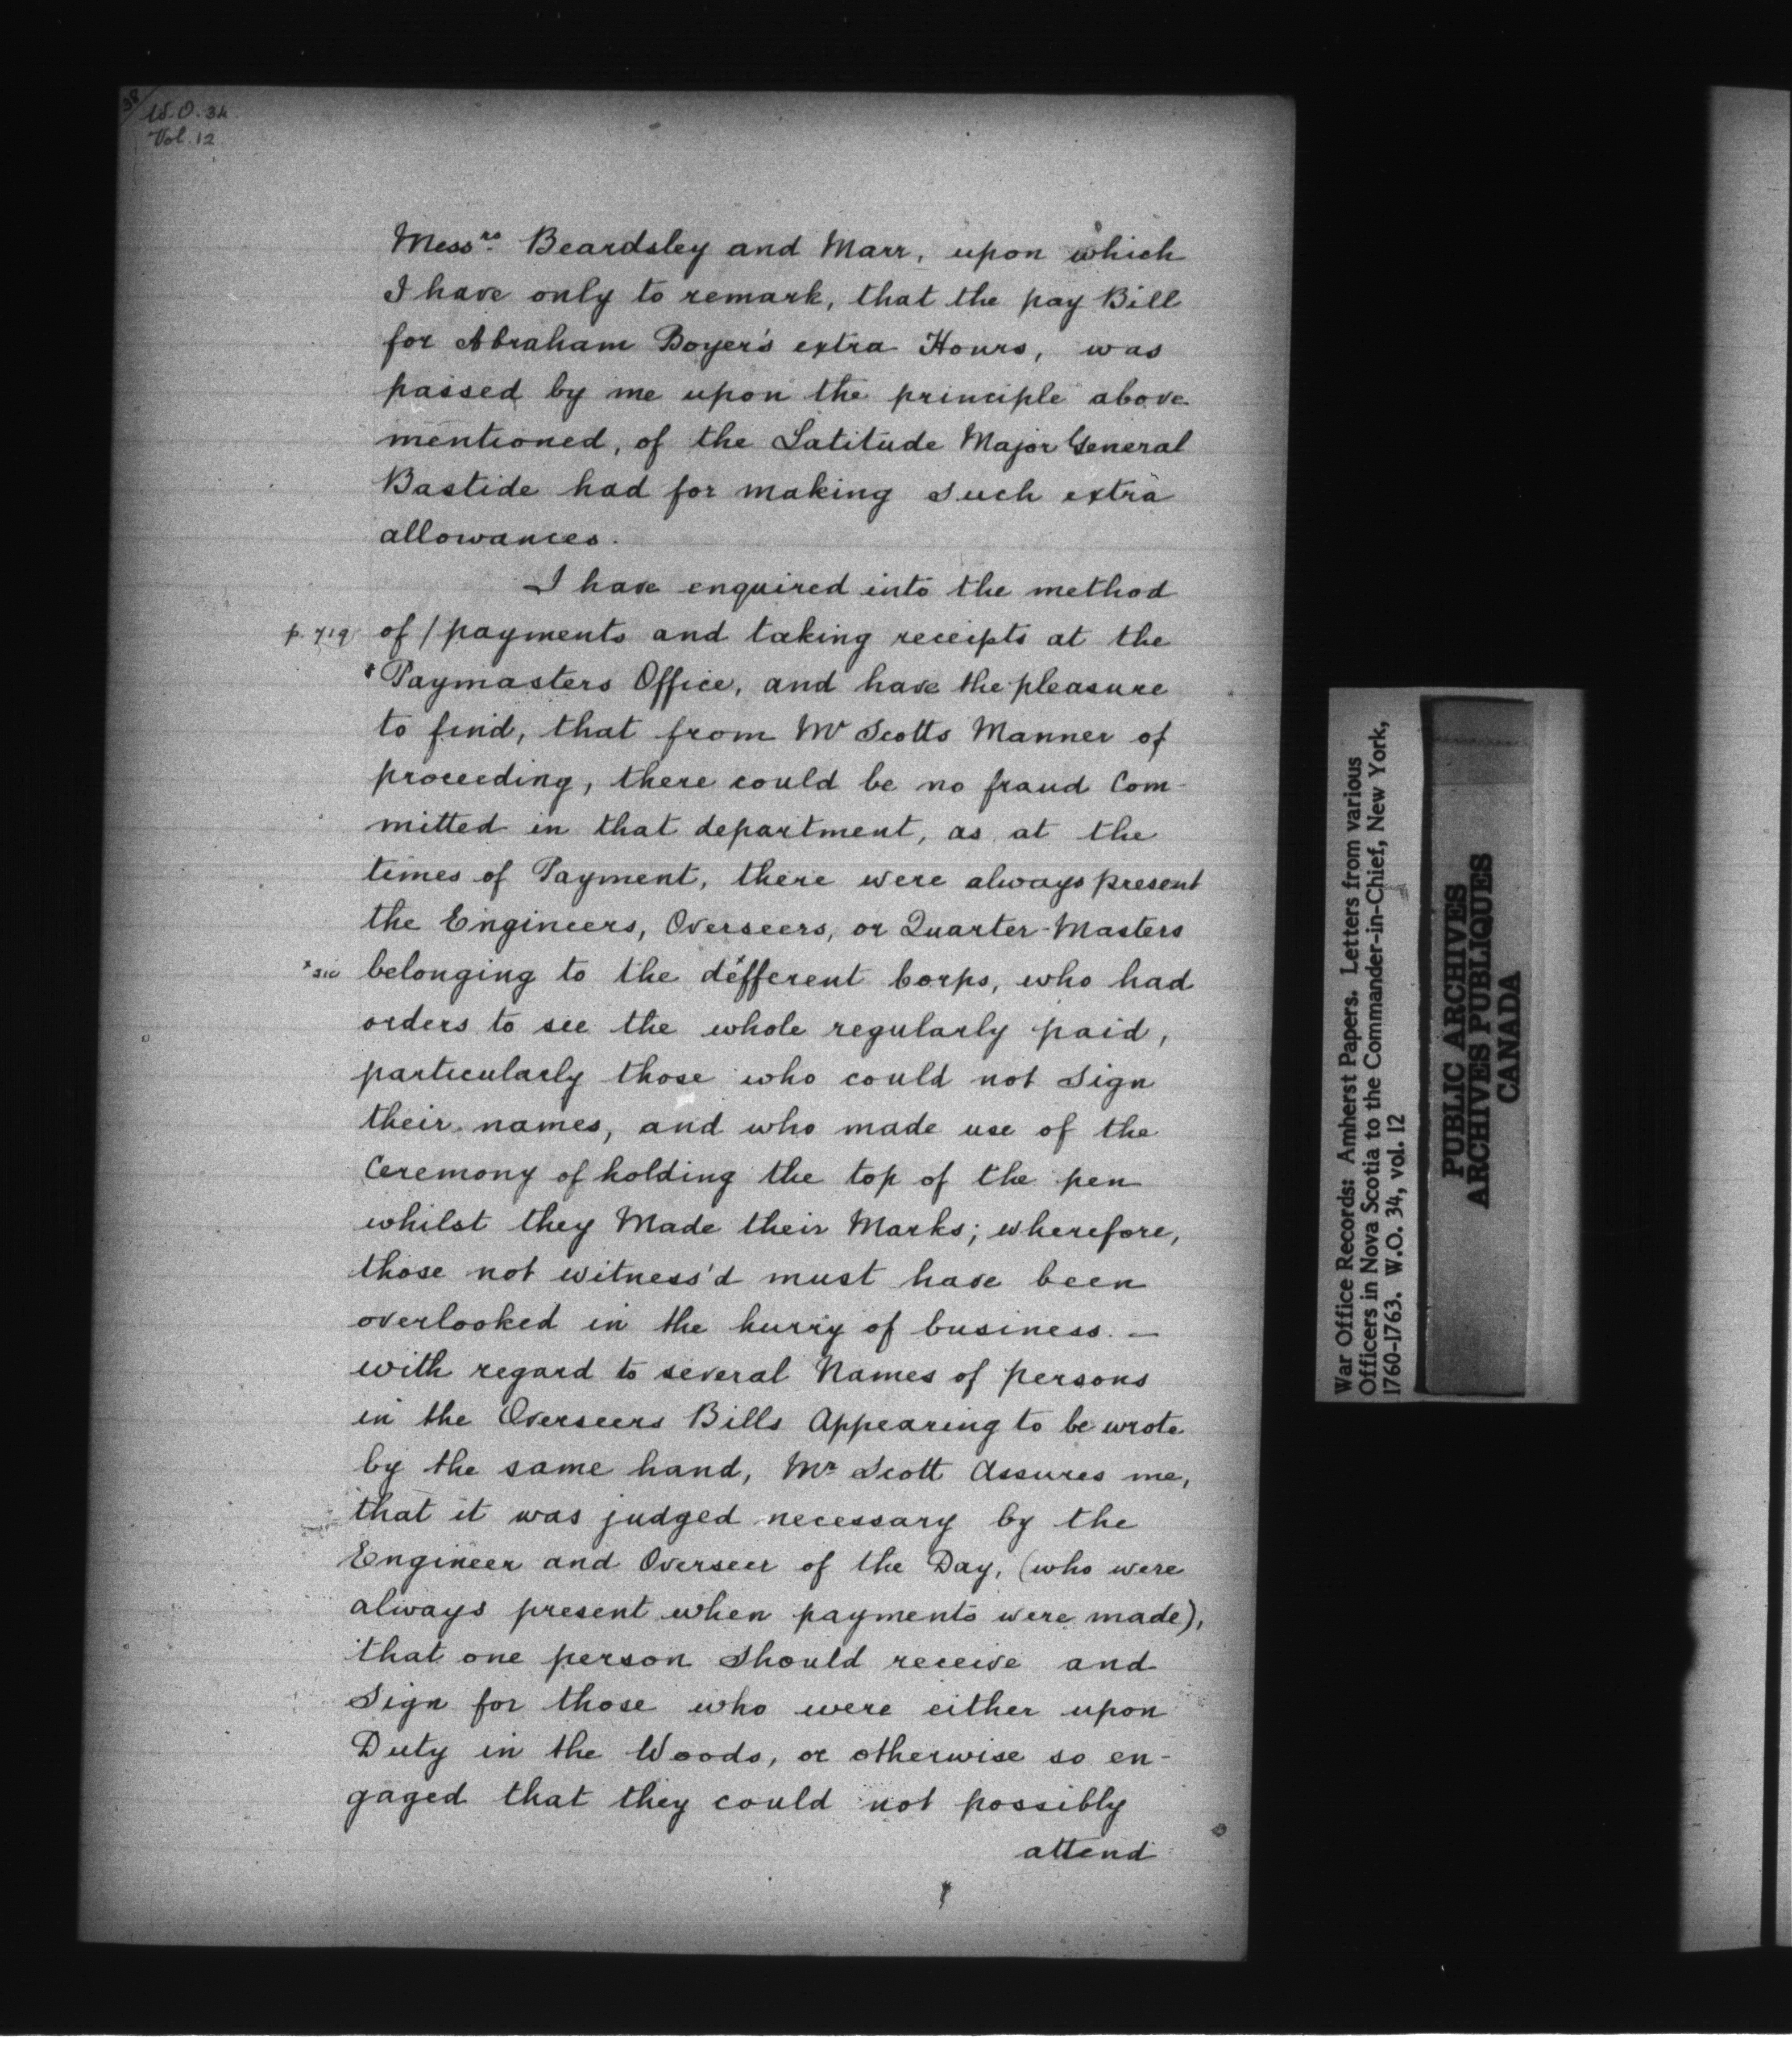 38/ W.O. 34.
Vol. 12
Messrs. Beardsley and Marr, upon which
I have only to remark, that the pay Bill
for Abraham Boyer's extra Hours, was
passed by me upon the principle above
mentioned, of the Latitude Major General
Bastide had for making such extra
allowances.
I have enquired into the method
p. 719 of / payments and taking receipts at the
Paymasters Office, and have the pleasure
to find, that from Mr Scotts Manner of
proceeding, there could be no fraud Com-
mitted in that department, as at the
times of Payment, there were always present
the Engineers, Overseers, or Quarter-Masters
*sic belonging to the defferent Corps, who had
orders to see the whole regularly paid,
particularly those who could not Sign
their names, and who made use of the
Ceremony of holding the top of the pen
whilst they Made their Marks; wherefore,
those not witness'd must have been
overlooked in the hurry of business. —
with regard to several Names of persons
in the Overseers Bills Appearing to be wrote
by the same hand, Mr Scott Assures me,
that it was judged necessary by the
Engineer and Overseer of the Day, (who were
always present when payments were made),
that one person Should receive and
Sign for those who were either upon
Duty in the Woods, or otherwise so en-
gaged that they could not possibly
attend
War Office Records: Amherst Papers. Letters from various
Officers in Nova Scotia to the Commander-in-Chief, New York,
1760-1763. W.O. 34, vol. 12
PUBLIC ARCHIVES
ARCHIVES PUBLIQUES
CANADA